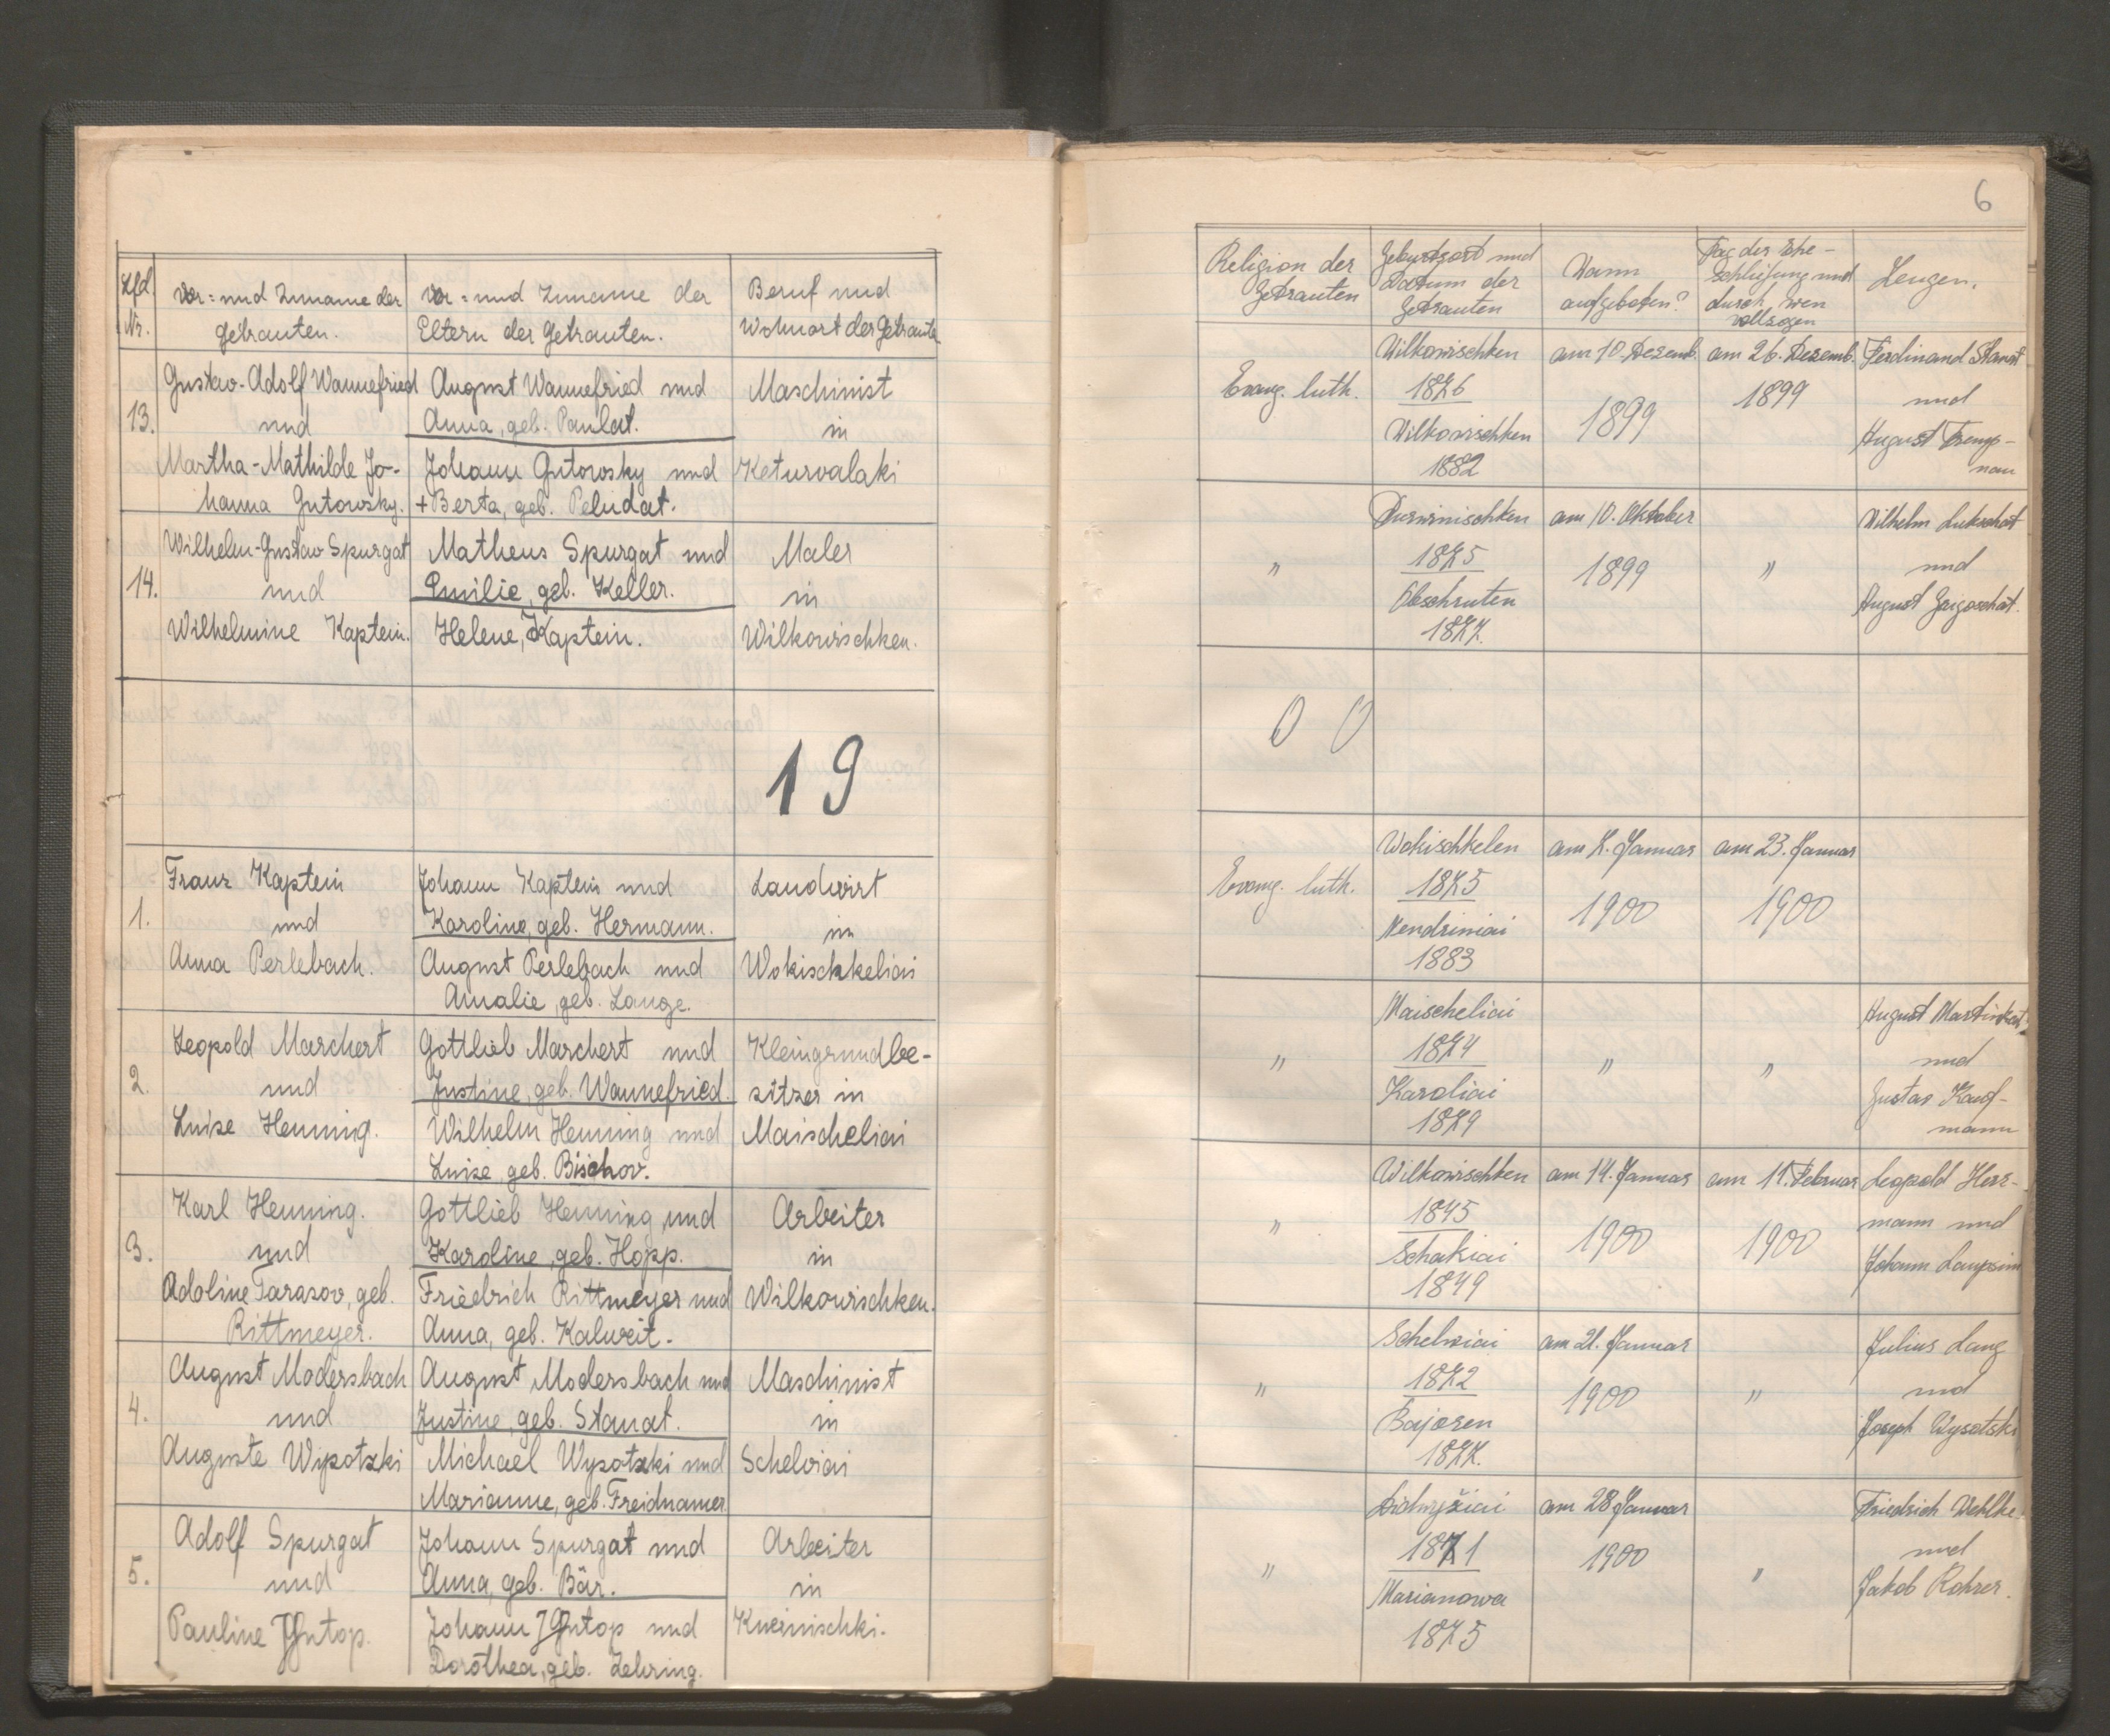 6
Lfd. Nr.
Vor- und Zuname der
Getrauten.
Vor- und Zuname der
Eltern der Getrauten.
Beruf und
Wohnort der Getraute
13.
Gustav-Adolf Wannefried
und
Martha-Mathilde Jo-
hanna Gutowsky.
August Wannefried und
Anna, geb. Paulat.
Johann Gutowsky und
+ Berta, geb. Peludat.
Maschinist
in
Keturvalaki
14.
Wilhelm-Gustav Spurgat
und
Wilhelmine Kaptein.
Matheus Spurgat und
Emilie, geb. Keller.
Helene, Kaptein.
Maler
in
Wilkowischken.
19
1.
Franz Kaptein
und
Anna Perlebach.
Johann Kaptein und
Karoline, geb. Hermann.
August Perlebach und
Amalie, geb. Lange.
Landwirt
in
Wokischkeliai
2.
Leopold Marchert
und
Luise Henning.
Gottlieb Marchert und
Justine, geb. Wannefried.
Wilhelm Henning und
Luise, geb. Bischov.
Kleingrundbe-
sitzer in
Maischeliai
3.
Karl Henning.
und
Adoline Tarasov, geb.
Rittmeyer.
Gottlieb Henning und
Karoline, geb. Hopp.
Friedrich Rittmeyer und
Anna, geb. Kalweit.
Arbeiter
in
Wilkowischken.
4.
August Modersbach
und
Auguste Wysotzki
August Modersbach und
Justine, geb. Stanat.
Michael Wysotzki und
Marianne, geb. Freidnamer
Maschinist
in
Schelviai
5.
Adolf Spurgat
und
Pauline Gutop.
Johann Spurgat und
Anna, geb. Bär.
Johann Gutop und
Dorothea, geb. Zehring.
Arbeiter
in
Kneinischki.
Religion der
Getrauten
Geburtsort und
Datum der
Getrauten
Wann
aufgeboten?
Tag der Ehe-
schließung und
durch wen
vollzogen
Zeugen.
Evang. luth.
Wilkowischken
1876
Wilkowischken
1882
am 10 Dezemb.
1899
am 26. Dezemb.
1899
Ferdinand Stanat
und
August Tremp-
nau
"
Durwinischken
1875
Obschruten
1877.
am 10. Oktober
1899
"
Wilhelm Lukschat
und
August Grigoschat.
00
Evang. luth.
Wokischkelen
1875
Mendriniai
1883
am 7. Januar
1900
am 23. Januar
1900
"
Maischeliai
1874
Karoliai
1879
"
"
August Martinkat
und
Gustav Kauf-
mann
"
Wilkowischken
1845
Schakiai
1849
am 14. Januar
1900
am 11. Februar
1900
Leopold Herr-
mann und
Johann
"
Schelviai
1872
Bajoren
1877.
am 21. Januar
1900
"
Julius Lang
und
Joseph Wysotski
"
1871
Marianowa
1875
am 28 Januar
1900
"
Friedrich Wehlke
und
Jakob Rohrer.